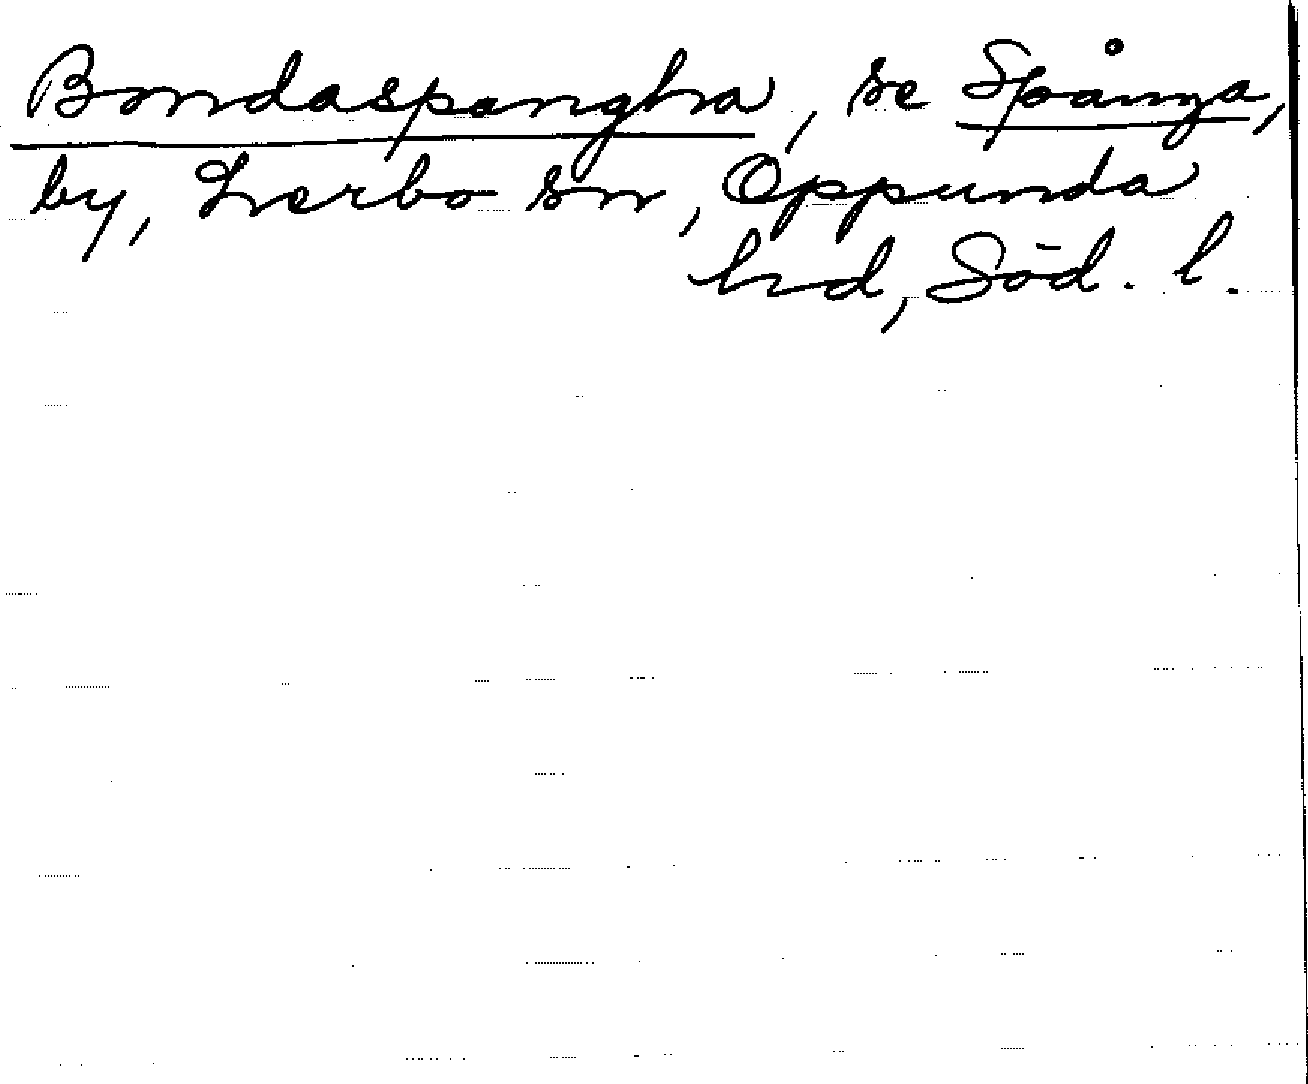 Bondaspangha, se Spånga,
by, Lerbo sn, Oppunda
hd, Söd. l.